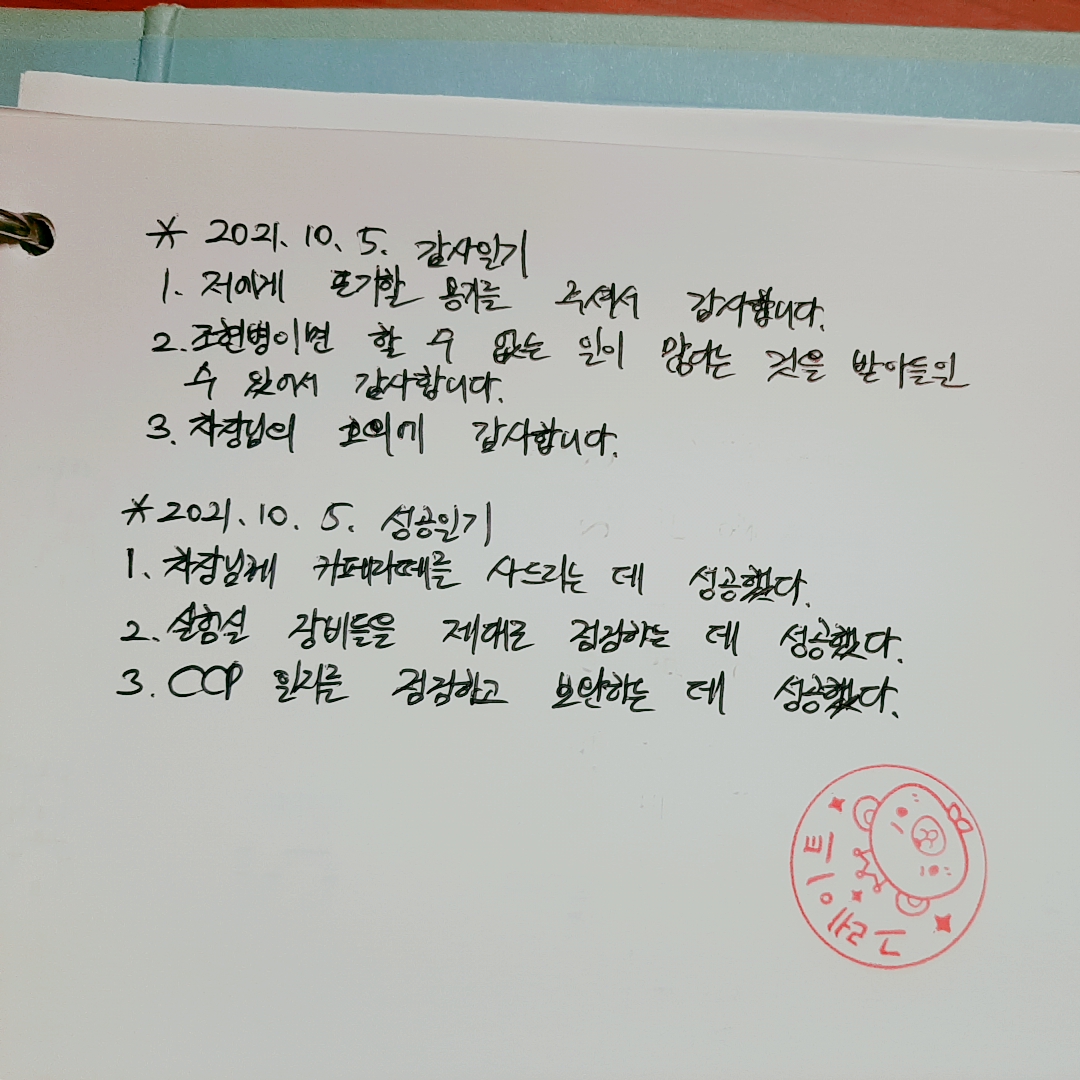 * 2021. 10. 5. 감사일기
1. 저에게 포기할 용기를 주셔서 감사합니다.
2. 조현병이면 할 수 없는 일이 많다는 것을 받아들일
수 있어서 감사합니다.
3. 차장님의 호의에 감사합니다.
* 2021. 10. 5. 성공일기
1. 차장님께 카페라떼를 사드리는 데 성공했다.
2. 실험실 장비들을 제대로 점검하는 데 성공했다.
3. CCP 일지를 점검하고 보완하는 데 성공했다.
그레이트